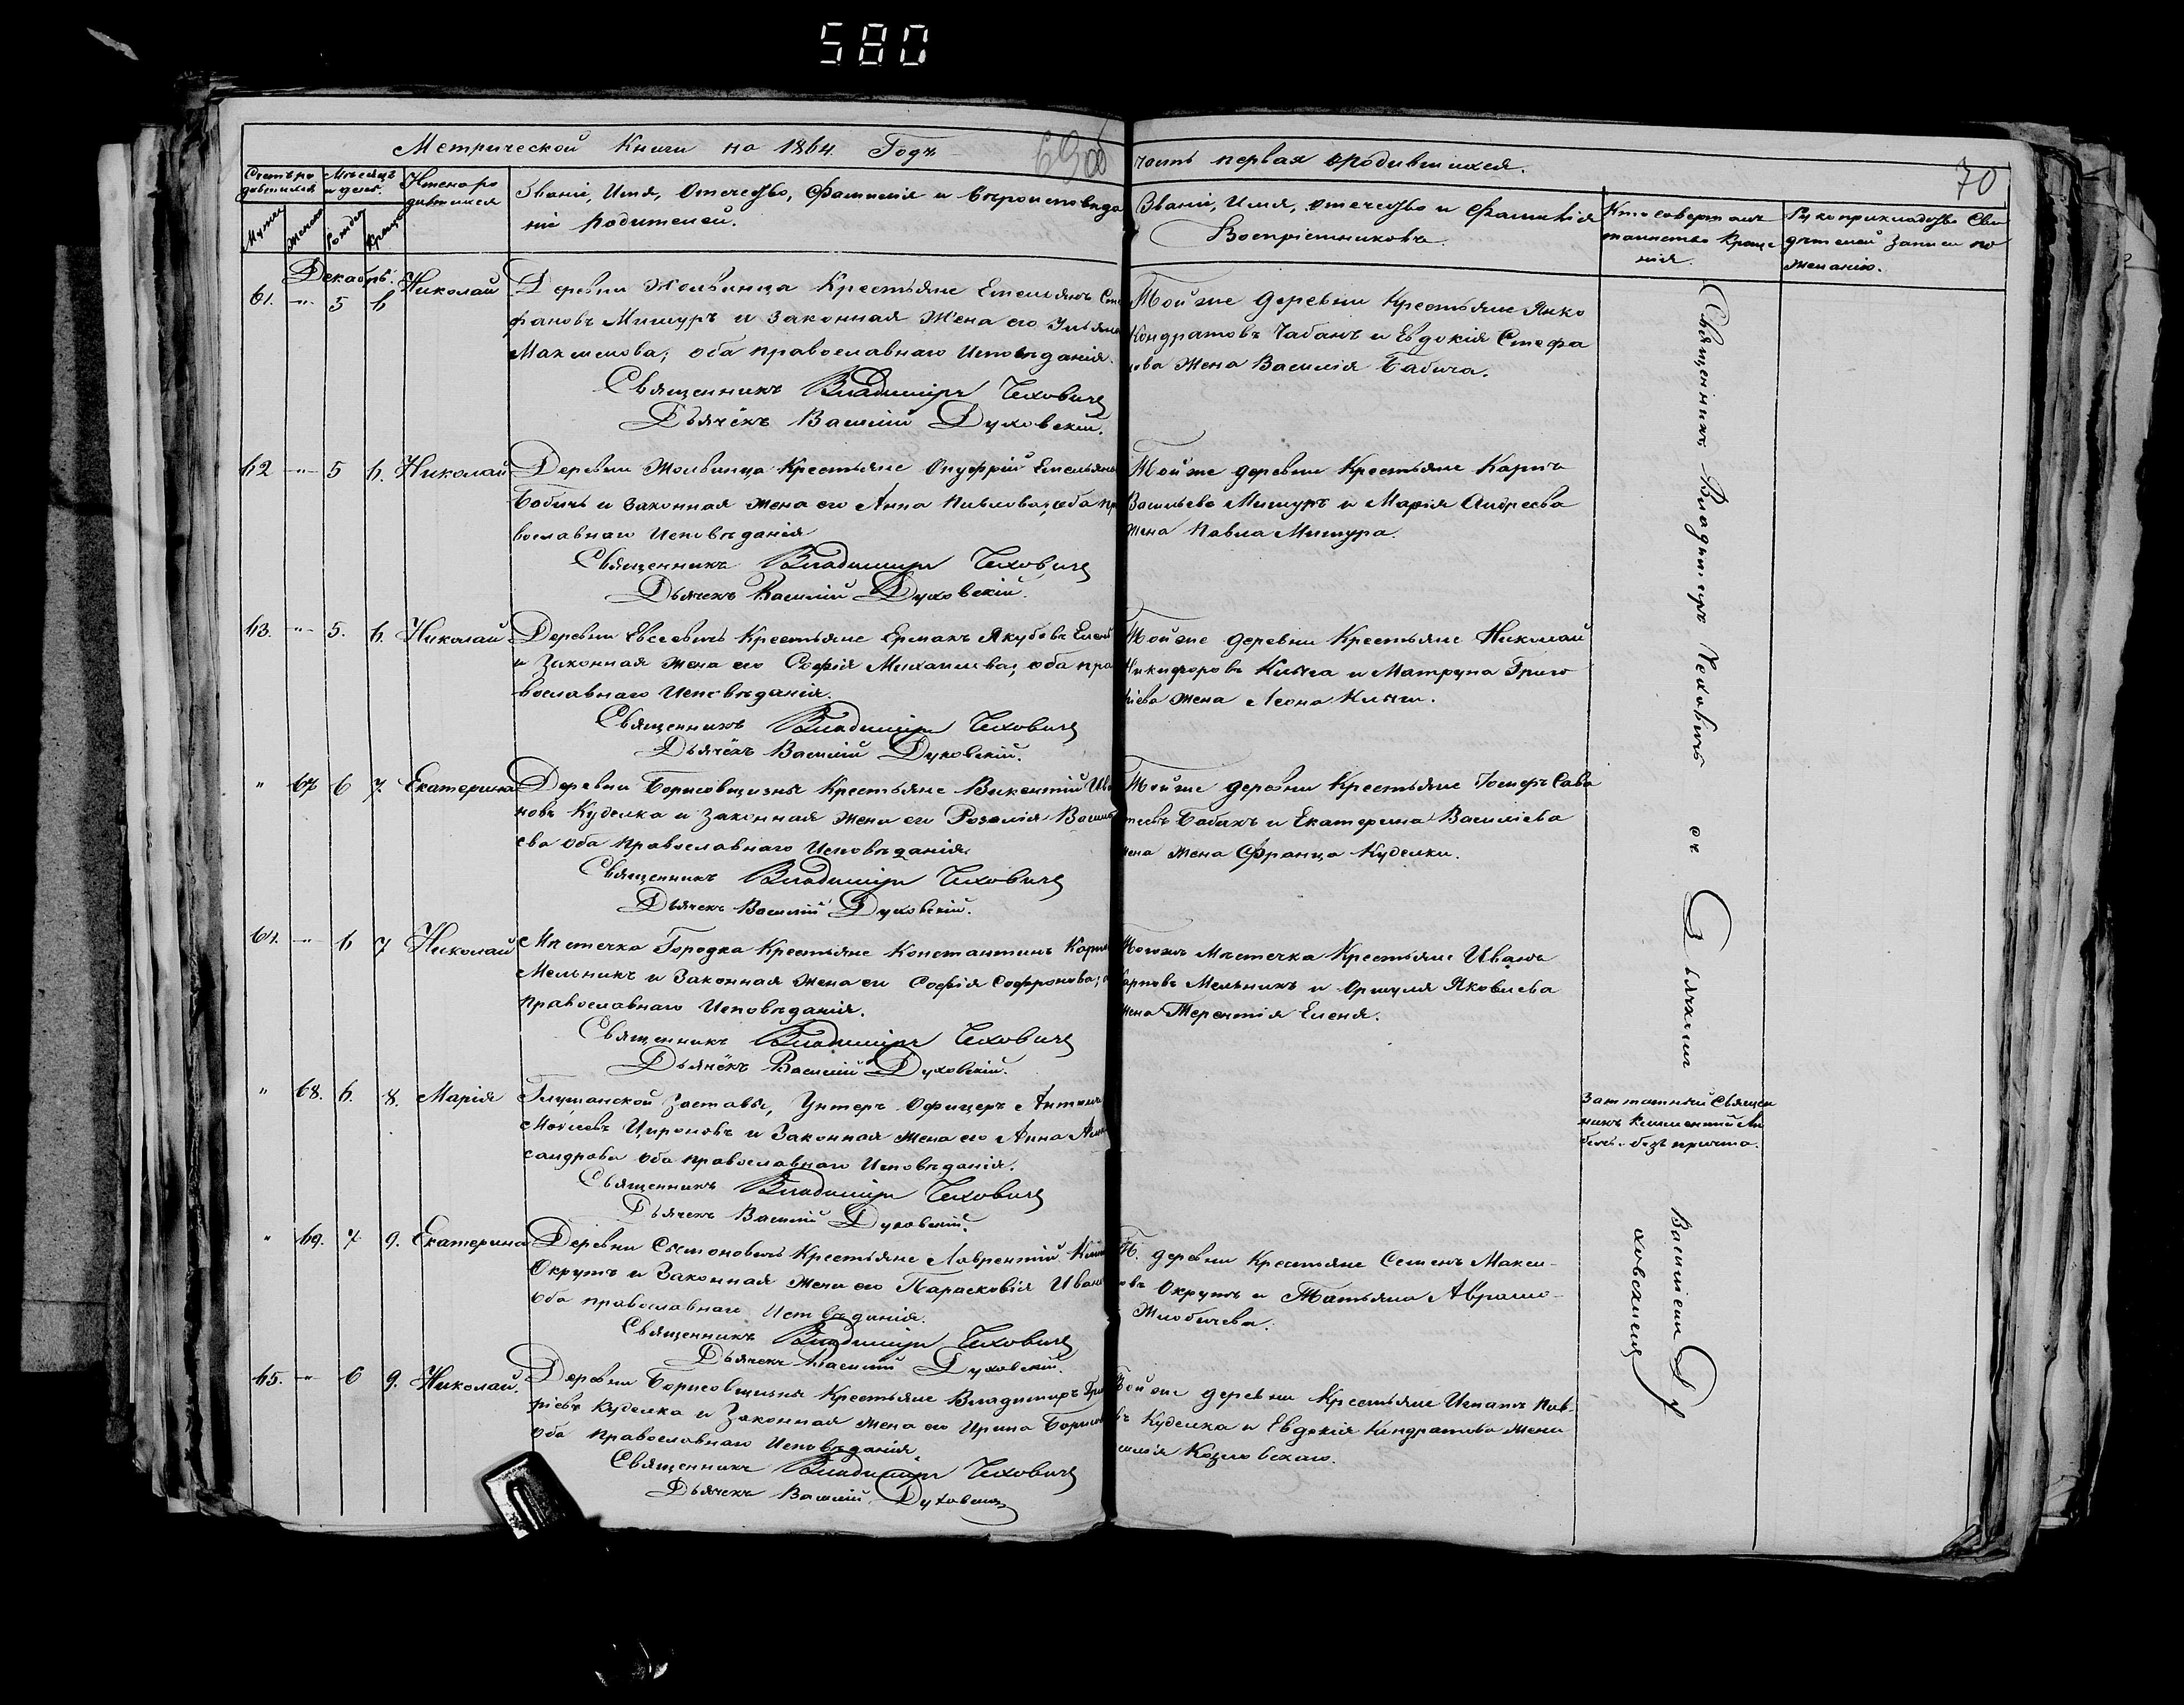 580
Метрической Книги на 1864 Годъ
69об
часть первая о родившихся.
70
Счетъ ро
дившихся
Мѣсяцъ
и день.
Имена ро
дившихся
Званіе, Имя, Отечество, Фамилія и вѣроисповѣда
ніе родителей.
Званіе, Имя, отечество и Фамилія
Воспріемниковъ.
Кто совершалъ
таинство Креще
нія.
Рукоприкладство Сви
дѣтелей записи по
желанію.
Декабрь.
61. -"- 5 6 Николай
Деревни Жолвинца Крестьяне Емельянъ Сте
фановъ Мишуръ и Законная Жена его Ульяна
оба православнаго Исповѣданія.
Священникъ Владиміръ Чеховичъ
Дьячекъ Василій Духовскій.
Той же деревни Крестьяне Янко
Кондратовъ Чабанъ и Евдокія Стефа
нова Жена Василія Бабича.
62 -"- 5 6. Николай
Деревни Жолвинца Крестьяне Онуфрій Емельяновъ
Бабичъ и Законная Жена его Анна Павлова; оба пра
вославнаго Исповѣданія
Священникъ Владиміръ Чеховичъ
Дьячекъ Василій Духовскій.
Той же деревни Крестьяне Карпъ
Васильевъ Мишуръ и Марія Андреева
Жена Павла Мишура.
63. -"- 5. 6. Николай
Деревни Евсеевичъ Крестьяне Ермакъ Якубовъ
и Законная Жена его Софія Михаилева; оба пра
вославнаго Исповѣданія.
Священникъ Владиміръ Чеховичъ
Дьячекъ Василій Духовскій.
Той же деревни Крестьяне Николай
Никифоровъ и Матруна Григо
ріева Жена Леона
" 67 6 7. Екатерина
Деревни Борисовщизны Крестьяне Викентій Ива
новъ Куделка и Законная Жена его Розалія Василь
ева оба православнаго Исповѣданія.
Священникъ Владиміръ Чеховичъ
Дьячекъ Василій Духовскій.
Той же деревни Крестьяне Іосифъ Сава
теевъ Бабакъ и Екатерина Василіева
Жена Франца Куделки.
64. -"- 6 7 Николай
Мѣстечка Городка Крестьяне Константинъ Карповъ
Мельникъ и Законная Жена его Софія Софронова;
православнаго Исповѣданія.
Священникъ Владиміръ Чеховичъ
Дьячекъ Василій Духовскій.
Тогожъ Мѣстечка Крестьяне Иванъ
Карповъ Мельникъ и Яковлева
Жена Терентія Еленя.
" 68. 6. 8. Марія
Глушанской Заставы, Унтеръ Офицеръ Антонъ
Моѵсеевъ Цироновъ и Законная Жена его Анна Алек
сандрова оба православнаго Исповѣданія.
Священникъ Владиміръ Чеховичъ
Дьячекъ Василій Духовскій.
Заштатный Священ
никъ Климентій
безъ причта.
" 69. 7 9. Екатерина
Деревни Сымоновичъ Крестьяне Лаврентій
Окрутъ и Законная Жена его Парасковія Иванова
оба православнаго Исповѣданія.
Священникъ Владиміръ Чеховичъ
Дьячекъ Василій Духовскій.
Т. деревни Крестьяне Семенъ Макси-
овъ Окрутъ и Татьяна Аврамо-
Жлобичева.
65. -"- 6 9. Николай.
Деревни Борисовщизны Крестьяне Владимиръ Григо
ріевъ Куделка и Законная Жена его Ирина Борисова
оба православнаго Исповѣданія
Священникъ Владиміръ Чеховичъ
Дьячекъ Василій Духовскій
Той же деревни Крестьяне Игнатъ Пав-
въ Куделка и Евдокія Кондратова Жена
силія Козловскаго.
Священникъ Владиміръ Чеховичъ съ Дьячкомъ
Василіемъ Ду
ховскимъ